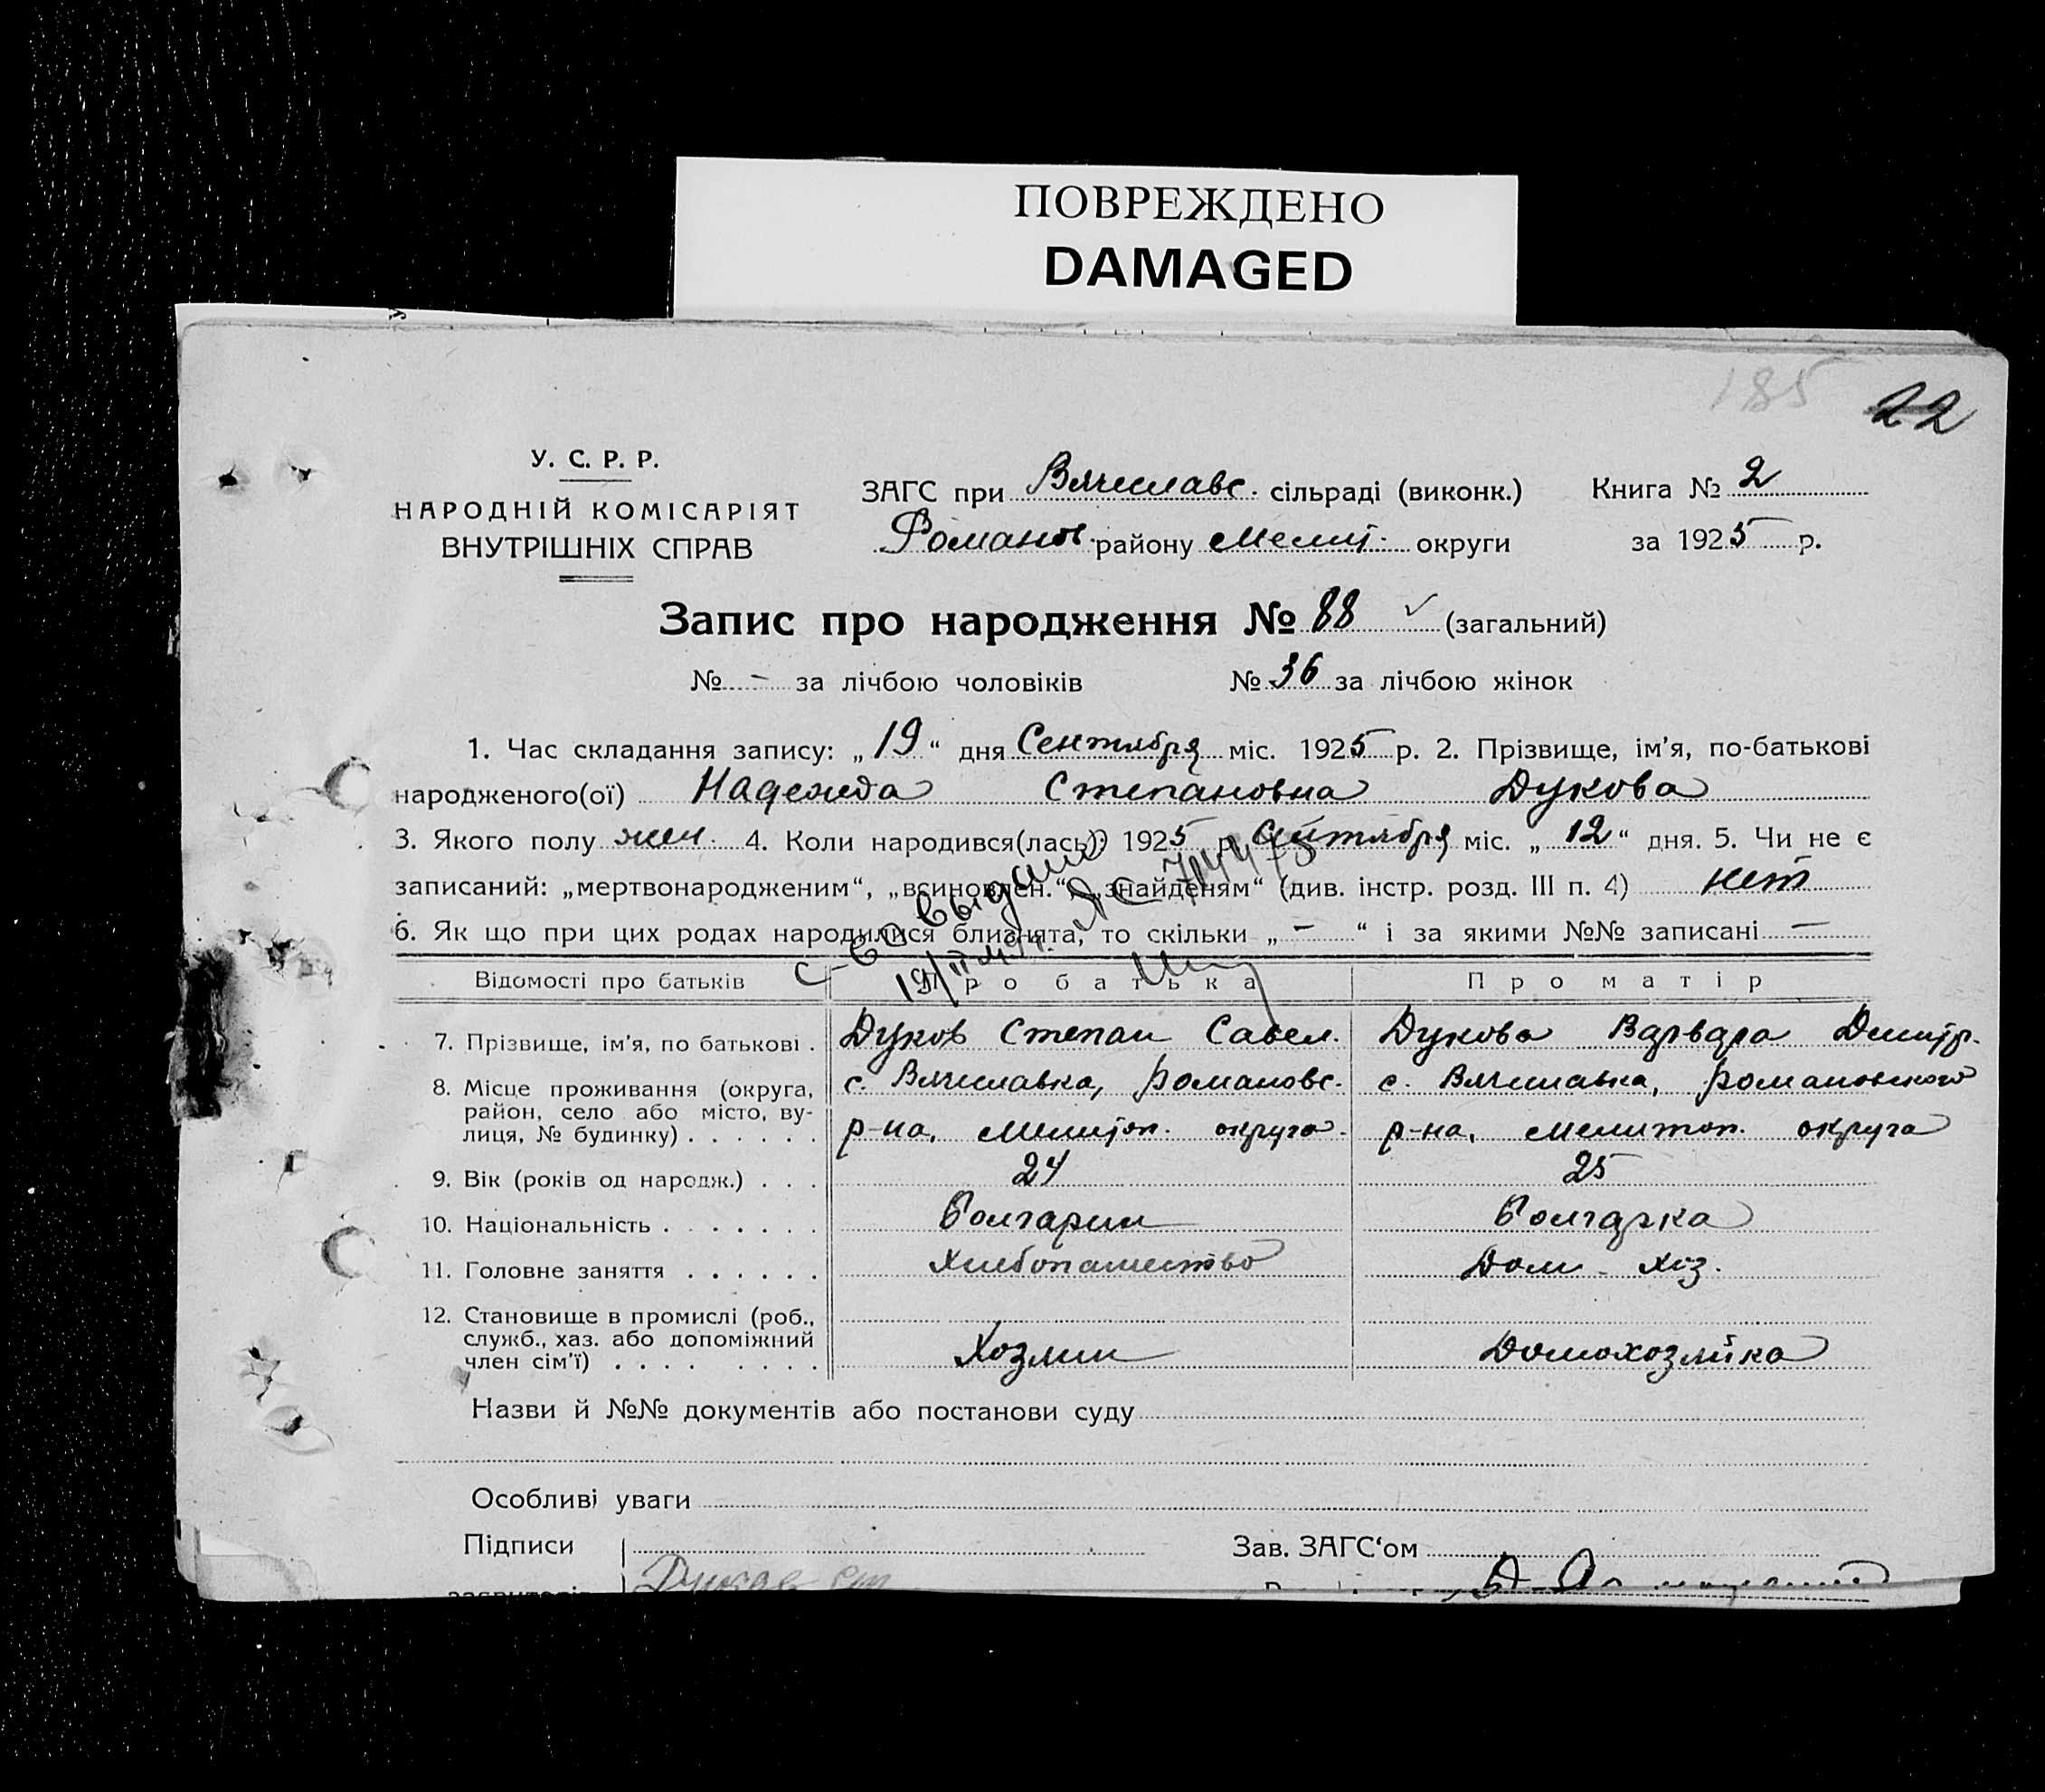 ПОВРЕЖДЕНО
DAMAGED
185 22
У. С. Р. Р.
НАРОДНІЙ КОМІСАРІЯТ
ВНУТРІШНІХ СПРАВ
ЗАГС при Вячеславс. сільраді (виконк.) Книга № 2
Романов. району Мелит. округи за 1925 р.
Запис про народження № 88 ✓ (загальний)
№ - за лічбою чоловіків № 36 за лічбою жінок
1. Час складання запису: „19“ дня Сентября міс. 1925 р. 2. Прізвище, ім'я, по-батькові
народженого(ої) Надежда Степановна Дукова
3. Якого полу жен. 4. Коли народився(лась)? 1925 р. Сентября міс. „12“ дня. 5. Чи не є
записаний: „мертвонародженим“, „всиновлен.“, „знайденям“ (див. інстр. розд. III п. 4) нет
6. Як що при цих родах народилися близнята, то скільки „-“ і за якими №№ записані -
с-во выдано
19/
Відомості про батьків Про батька Про матір
7. Прізвище, ім'я, по батькові . Дуков Степан Савел. Дукова Варвара Дмитр.
8. Місце проживання (округа, с. Вячеславка, Романовс. с. Вячеславка, Романовского
район, село або місто, ву-
лиця, № будинку) . . . . . . р-на, Мелитоп. округа. р-на, Мелитоп. округа
9. Вік (років од народж.) . . . 24 25
10. Національність . . . . . . . Болгарин Болгарка
11. Головне заняття . . . . . . Хлебопашество Дом. хоз.
12. Становище в промислі (роб.,
служб., хаз. або допоміжний
член сім'ї) . . . . . . . . Хозяин Домохозяйка
Назви й №№ документів або постанови суду
Особливі уваги
Підписи Зав. ЗАГС'ом